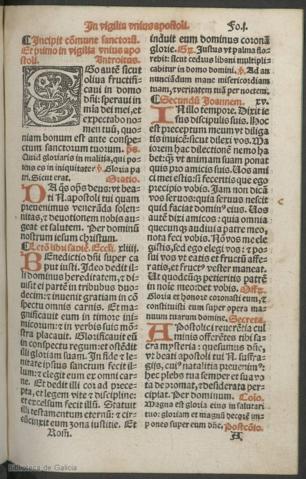 In vigilia vnius apostoli. Fo.j.
Incipit cõmune sanctorũ.
Et primo in vigilia vnius apo
stoli. Introitus.
EGo autẽ sicut
oliua fructifi
caui in domo
dñi: speraui in
mĩa dei mei, et
expectabo no
men tuũ, quo
niam bonum est ante conspe
ctum sanctorum tuorum. ps.
Quid gloriaris in malitia, qui po
tens es in iniquitate? Gloria pa
tri. Sicut erat. Oratio.
DA q̃s oĩps deus: vt bea
ti N. apostoli tui quam
preuenimus venerãda solen-
nitas, et deuotionem nobis au
geat et salutem. Per dominũ
nostrum iesum christum.
Lectio libri sapiẽ. Eccli. xliiij.
BEnedictio dñi super ca
put iusti. Ideo dedit il-
li dominus hereditatem, et di-
uisit ei partẽ in tribubus duo-
decim: et inuenit gratiam in cõ
spectu omnis carnis. Et ma-
gnificauit eum in timore ini-
micorum: et in verbis suis mõ-
stra placauit. Glorificauit eũ
in conspectu regum: et ostẽdit
illi gloriam suam. In fide et le-
nitate ipsius sanctum fecit il-
lum: et elegit eum ex omni car-
ne. Et dedit illi cor ad prece-
pta, et legem vite et discipline:
et excelsum fecit illũ. Statuit
illi testamentum eternũ: et cir-
cũcinxit eum zona iustitie. Et
Rom.
induit eum dominus coronã
glorie. Justus vt palma flo-
rebit: sicut cedrus libani multipli-
cabitur in domo domini. Ad an
nunciãdum mane misericordiam
tuam, et veritatem tuã per noctem.
Secundũ Joannem. xv.
IN illo tempore. Dixit ie
sus discipulis suis. Hoc
est preceptum meum: vt diliga
tis inuicẽ: sicut dilexi vos. Ma
iorem hac dilectionẽ nemo ha
bet: q̃ vt animam suam ponat
quis pro amicis suis. Uos ami
ci mei estis: si feceritis que ego
precipio vobis. Iam non dicã
vos seruos: quia seruus nescit
quid faciat dominus eius. Uos
autẽ dixi amicos: quia omnia
quecunq̃ audiui a patre meo,
nota feci vobis. Nõ vos me ele
gistis, sed ego elegi vos: et po-
sui vos vt eatis et fructũ affe-
ratis, et fructus vester maneat.
Ut quodcũq̃ petieritis patrẽ
in noĩe meo: det vobis. Offer.
Gloria et honore coronasti eum, et
constituisti eum super opera ma-
nuum tuarum domine. Secreta.
APostolici reuerẽtia cul
minis offerentes tibi sa
cra mysteria: quesumus dñe,
vt beati apostoli tui N. suffra-
gijs, cui9 natalitia preuenim9:
plebs tua semper et sua vo
ta depromat, et desiderata per-
cipiat. Per dominum. Cõio.
Magna est gloria eius in salutari
tuo: gloriam et magnũ decorẽ im-
pones super eum dñe. Postcõio.
A
Biblioteca de Galicia